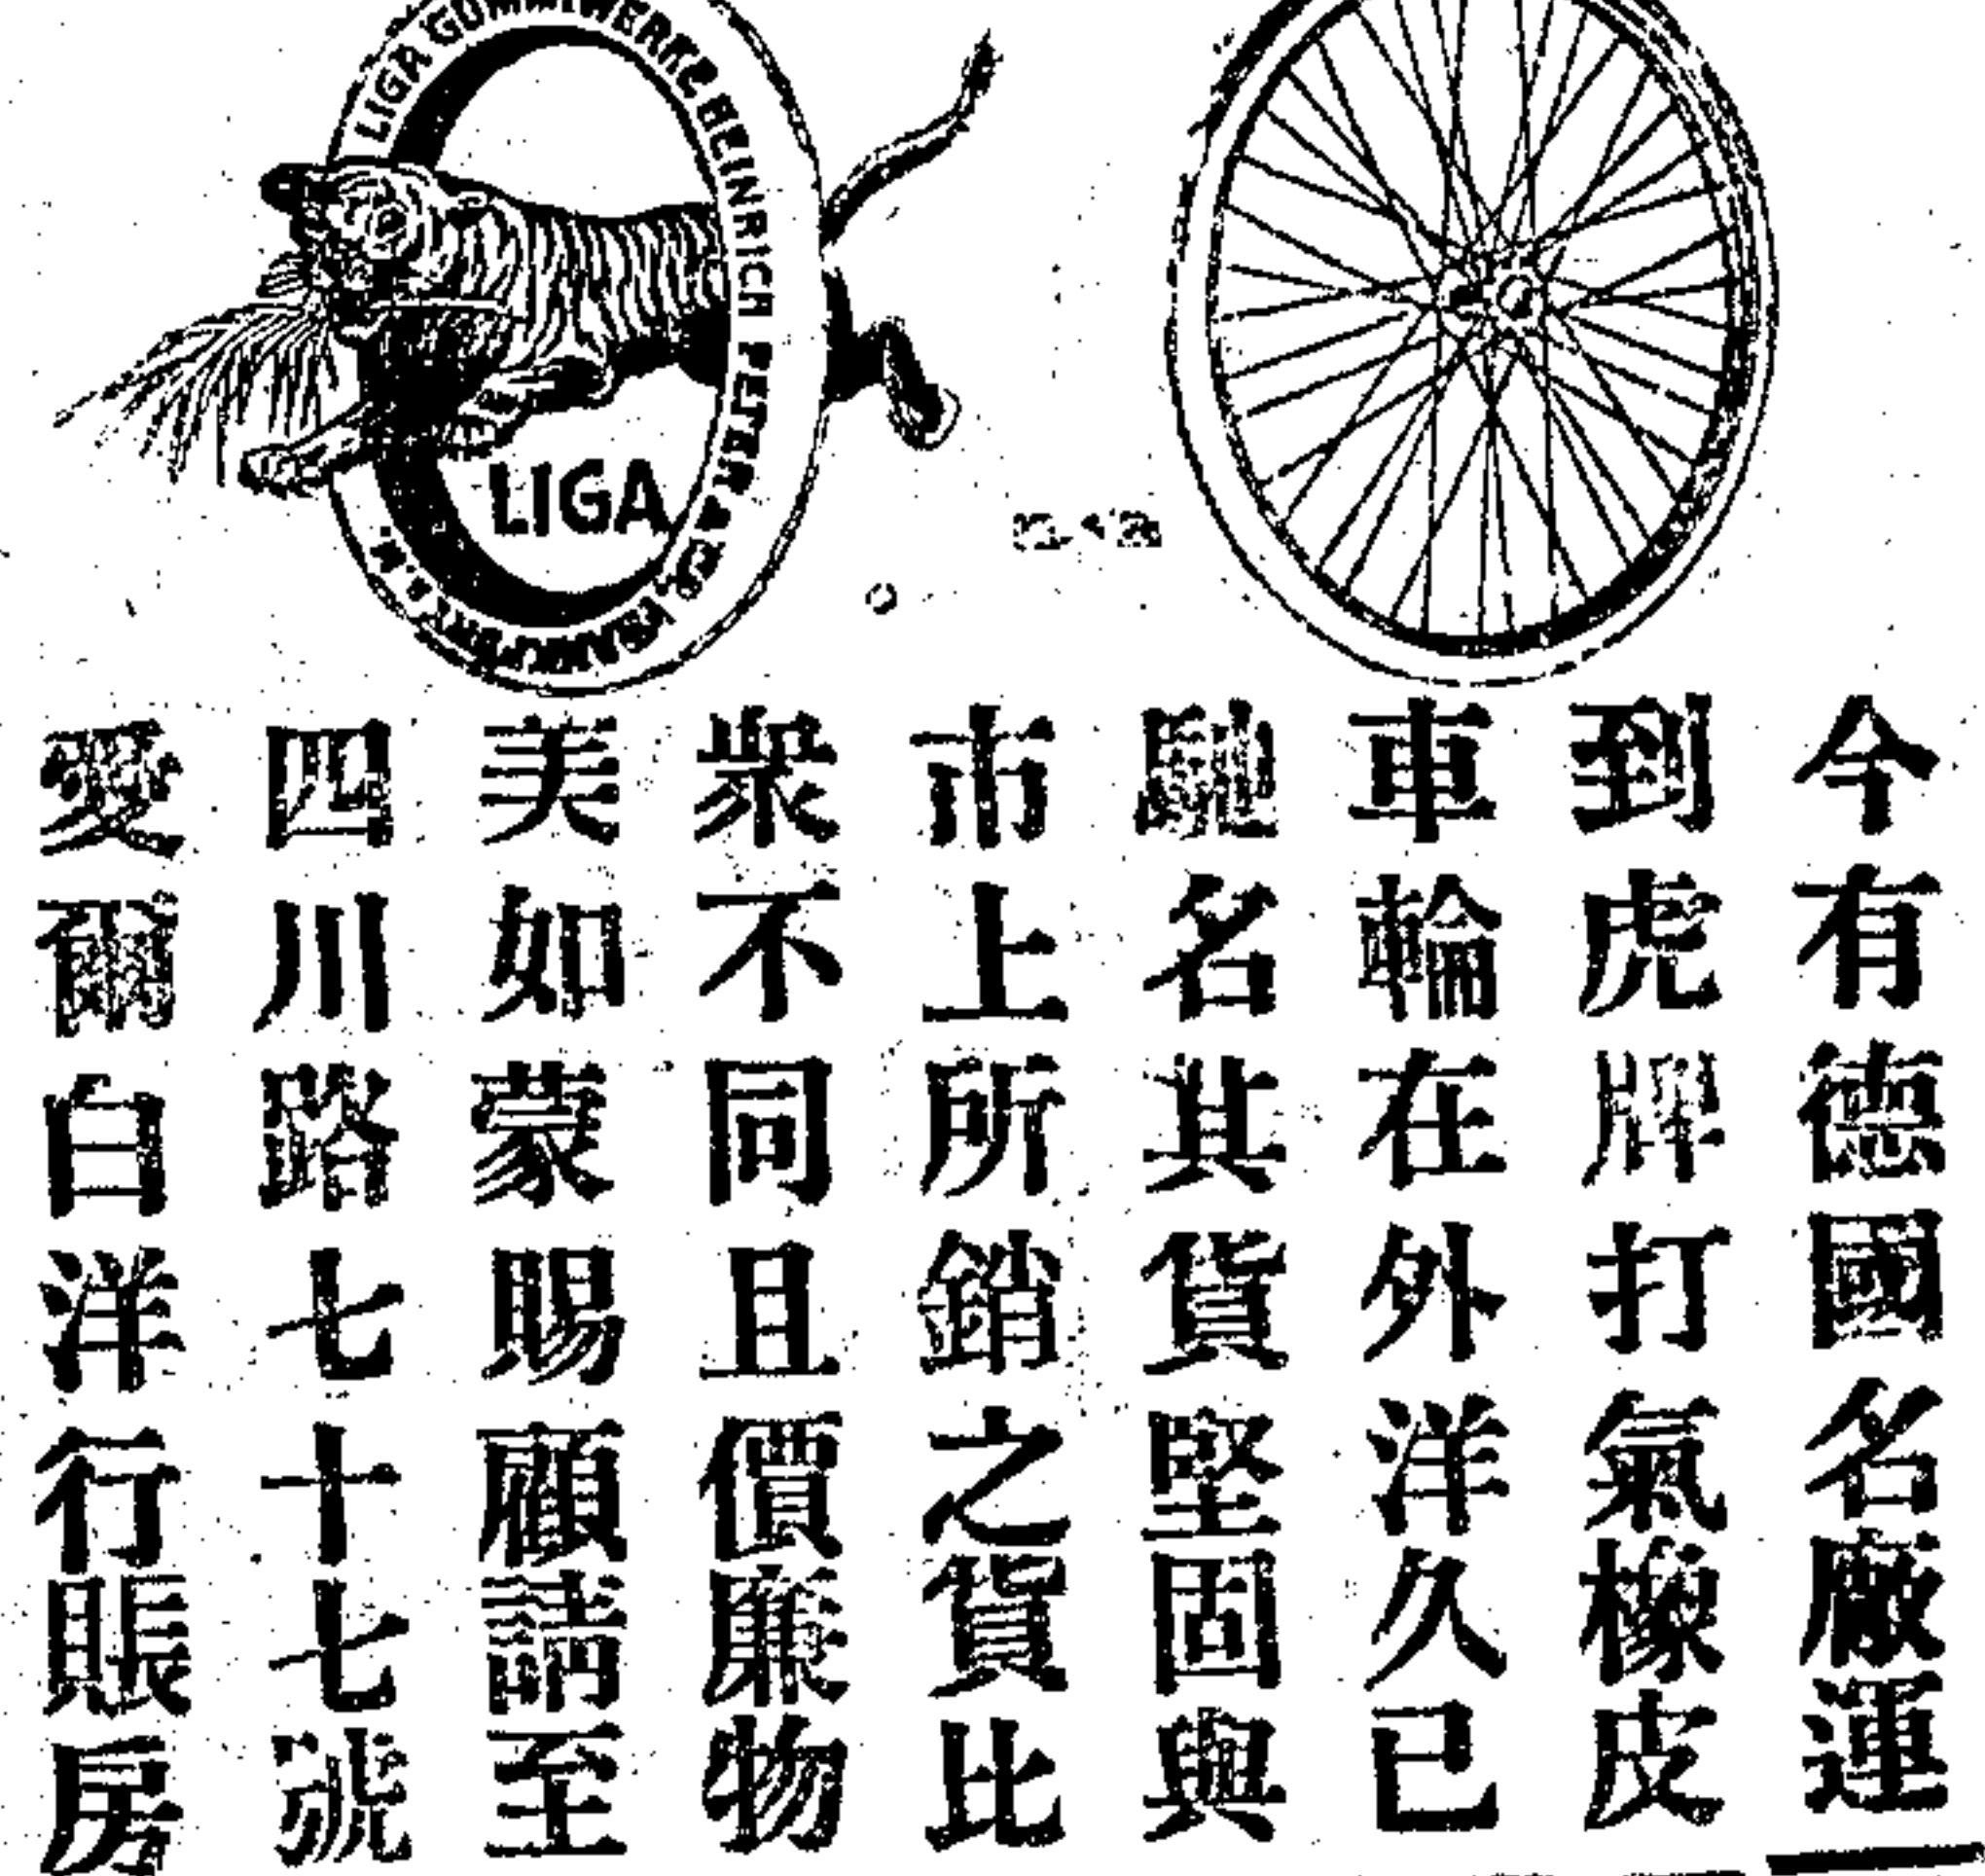 LIGA GUMMIWERKE HEINRICH PETER & Co, FRANKFURT A.M.
LIGA
今有德國名廠運
到虎牌打氣橡皮
車輪在外洋久已
馳名其貨堅固與
市上所銷之貨比
衆不同且價廉物
美如蒙賜顧請至
四川路七十七號
愛爾白洋行賬房